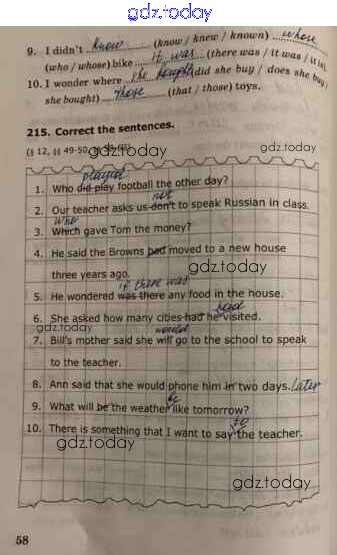 gdz.today
9. I didn't know (know / knew / known) whose
(who / whose) bike it was (there was / it was / it is).
10. I wonder where she bought (did she buy / does she buy /
she bought) those (that / those) toys.
215. Correct the sentences.
(§ 12, §§ 49-50,
gdz.today
played
1. Who did play football the other day?
not
2. Our teacher asks us don't to speak Russian in class.
who
3. Which gave Tom the money?
4. He said the Browns had moved to a new house
three years ago.
gdz.today
if there was
5. He wondered was there any food in the house.
had
6. She asked how many cities had he visited.
gdz.today
would
7. Bill's mother said she will go to the school to speak
to the teacher.
8. Ann said that she would phone him in two days. later
be
9. What will be the weather like tomorrow?
to
10. There is something that I want to say the teacher.
gdz.today
gdz.today
58